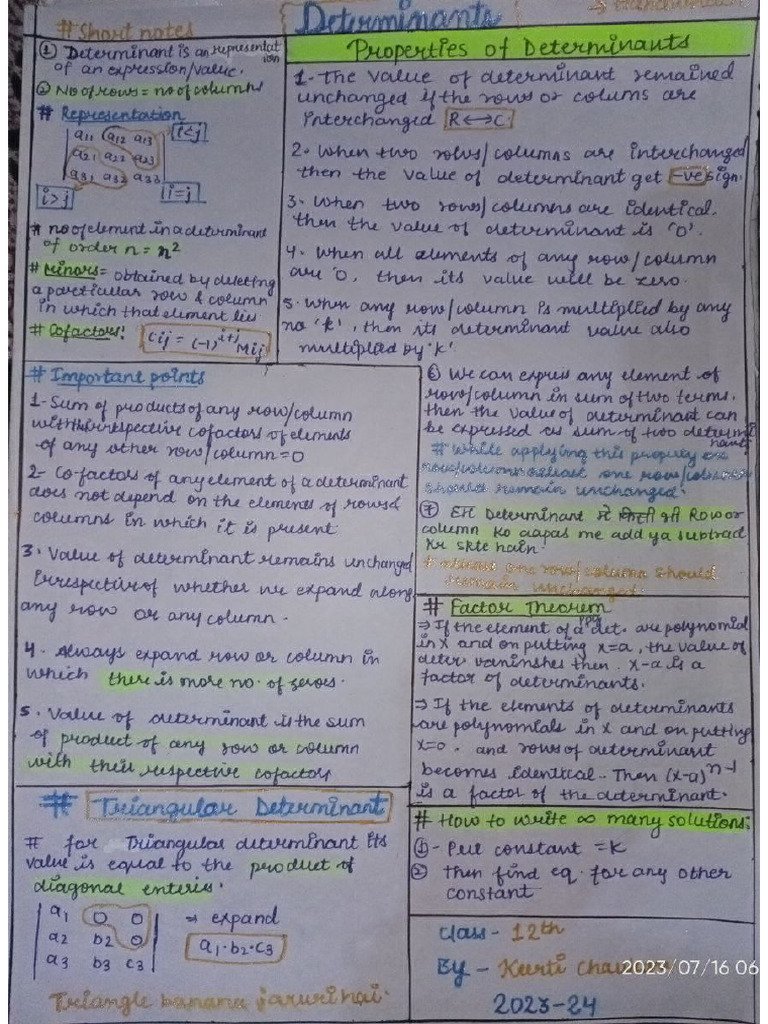 Determinants
# Short notes
① Determinant is an representat
ion
of an expression/value.
② No of rows = no of columns
# Representation
a11 a12 a13 i<j
a21 a22 a23
a31 a32 a33
i>j i=j
# no of element in a determinant
of order n = n²
# Minors = obtained by deleting
a particular row & column
in which that element lies
# Cofactors: Cij = (-1)^i+j Mij
Properties of Determinants
1- The value of determinant remained
unchanged if the rows or colums are
interchanged R↔C
2. when two rows/columns are interchanged
then the value of determinant get -ve sign.
3. when two rows/columns are identical.
then the value of determinant is '0'.
4. when all elements of any row/column
are '0', then its value will be zero.
5. when any row/column is multiplied by any
no 'k', then its determinant value also
multiplied by 'k'
# Important points
1- Sum of products of any row/column
with their respective cofactors of elements
of any other row/column = 0
2- Co-factors of any element of a determinant
does not depend on the elements of rows &
columns in which it is present
3. Value of determinant remains unchanged
irrespective of whether we expand along
any row or any column.
4. Always expand row or column in
which there is more no. of zeroes.
5. Value of determinant is the sum
of product of any row or column
with their respective cofactors
⑥ We can express any element of
row/column in sum of two terms.
then the value of determinant can
be expressed as sum of two determi
nants
# While applying this property on
row/column atleast one row/column
should remain unchanged.
⑦ हम Determinant मे किसी भी Row or
column ko aapas me add ya subtract
kr skte hain.
one row/column should
remain unchanged
# Factor Theorem
⇒ If the element of a det. are polynomial
in x and on putting x=a, the value of
deter vaninshes then x-a is a
factor of determinants.
⇒ If the elements of determinants
are polynomials in x and on putting
x=0. and rows of determinant
becomes identical. Then (x-a)^n-1
is a factor of the determinant.
# Triangular Determinant
# for Triangular determinant its
value is equal to the product of
diagonal enteries.
a1 0 0 → expand
a2 b2 0 a1·b2·c3
a3 b3 c3
Triangle banana jaruri hai.
# How to write ∞ many solutions:
①- Put constant = K
② then find eq. for any other
constant
Class- 12th
By - Kurti
2023-24
2023/07/16 06